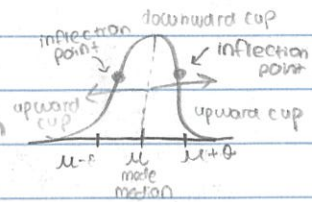 downward cup
inflection
point
inflection
point
upward
cup
upward cup
μ
μ+θ
mode
median